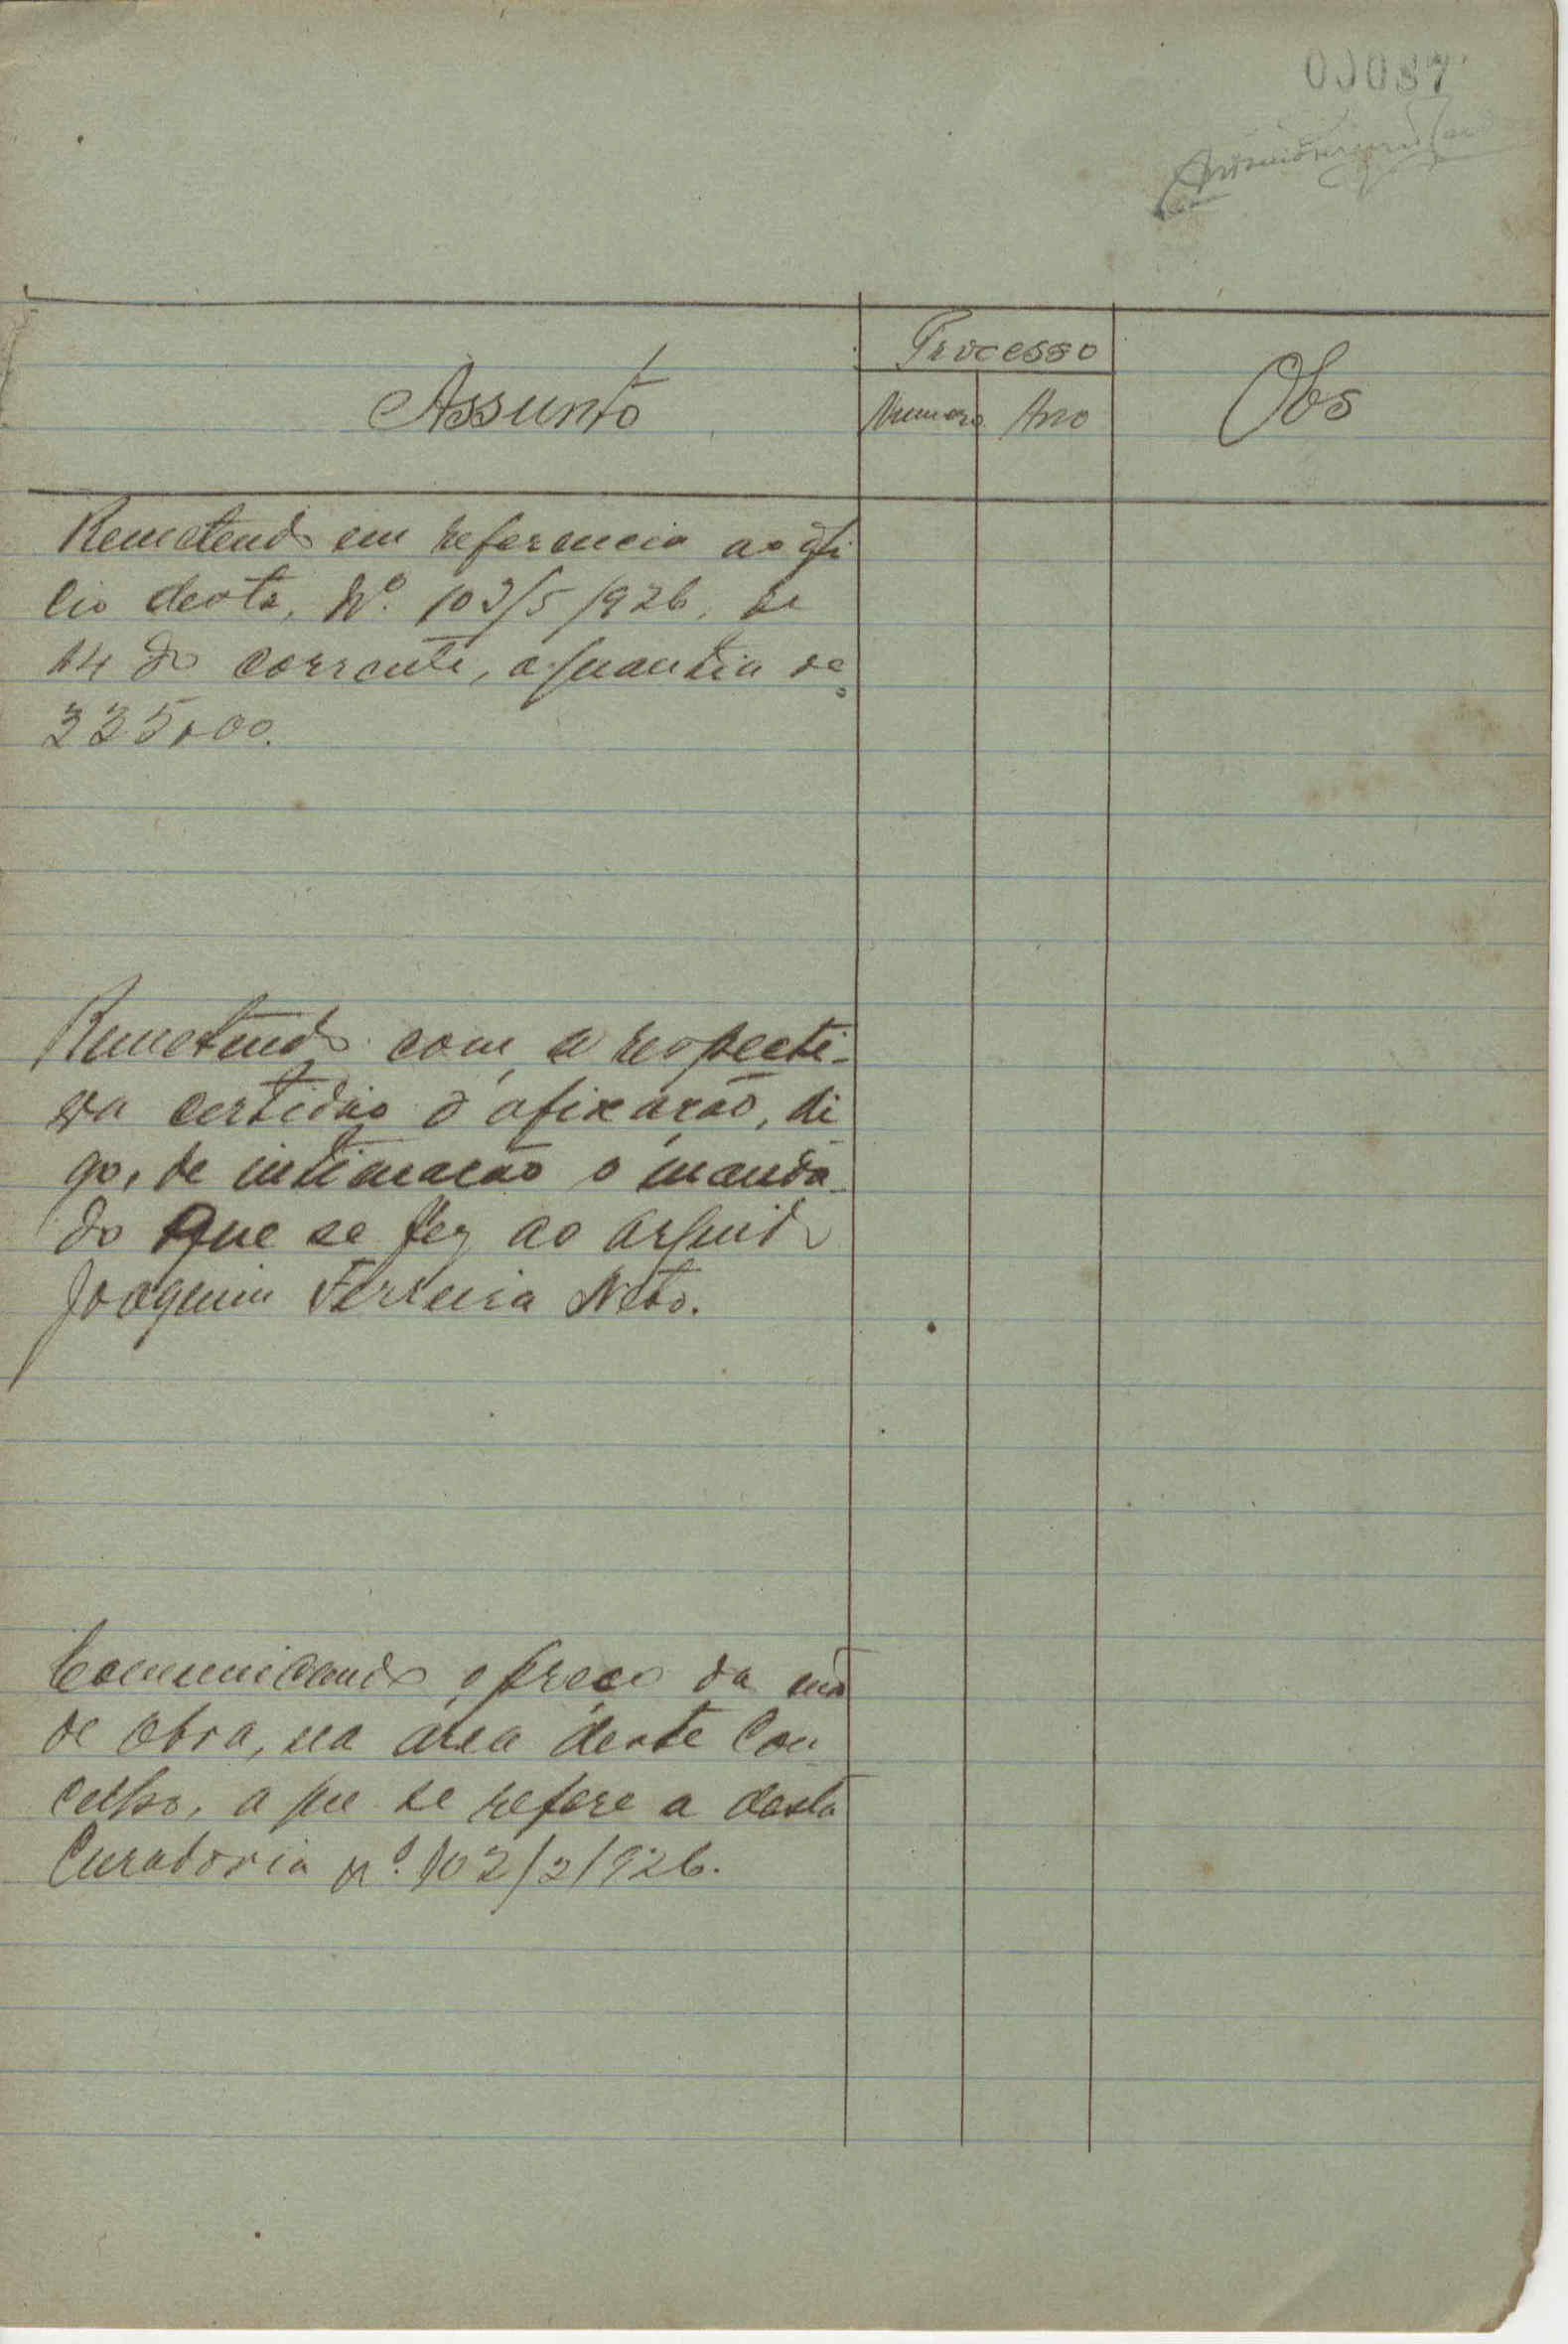 00087
Processo
Assunto
Numero Ano
Obs
Remetendo em referencia ao ofi
cio desta, Nº. 103/5/926, de
14 do corrente, a quantia de
335,00.
Remetendo com a respecti-
va certidão d'afixação, di
go, de intimação o manda-
do que se fez ao arguido
Joaquim Ferreira Neto.
Comunicando o preço da mão
de obra, na área deste Con
celho, a que se refere a desta
Curadoria nº. 102/2/926.